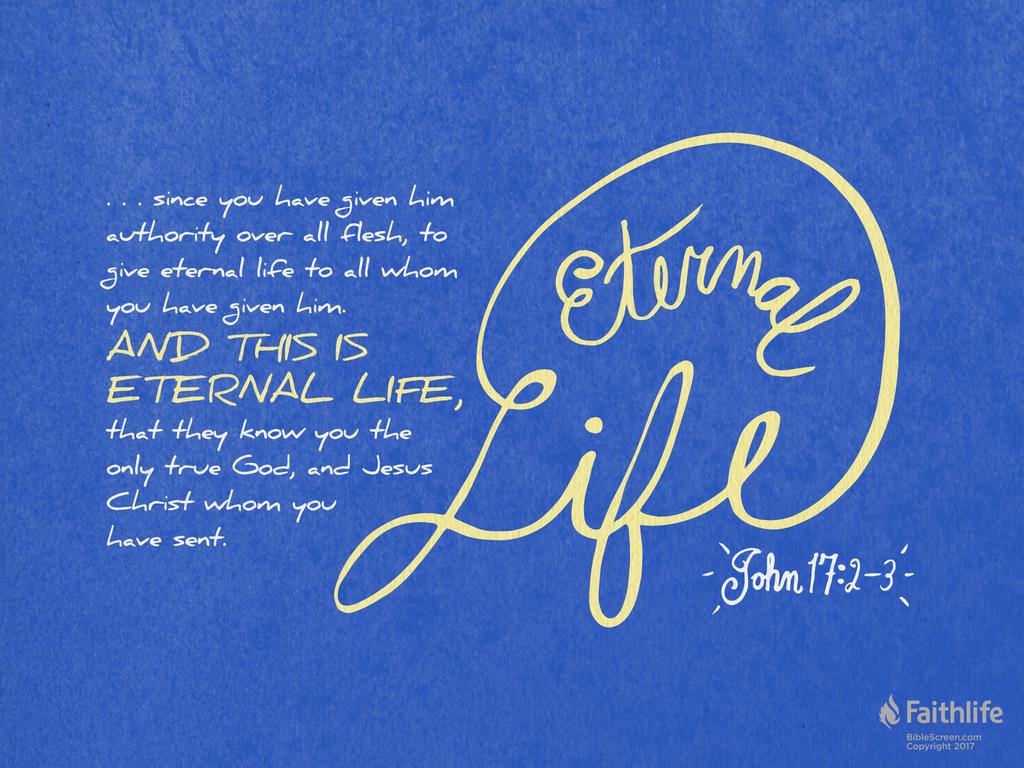 . . . since you have given him
authority over all flesh, to
give eternal life to all whom
you have given him.
AND THIS IS
ETERNAL LIFE,
that they know you the
only true God, and Jesus
Christ whom you
have sent.
Eternal
Life
John 17:2-3
Faithlife
BibleScreen.com
Copyright 2017